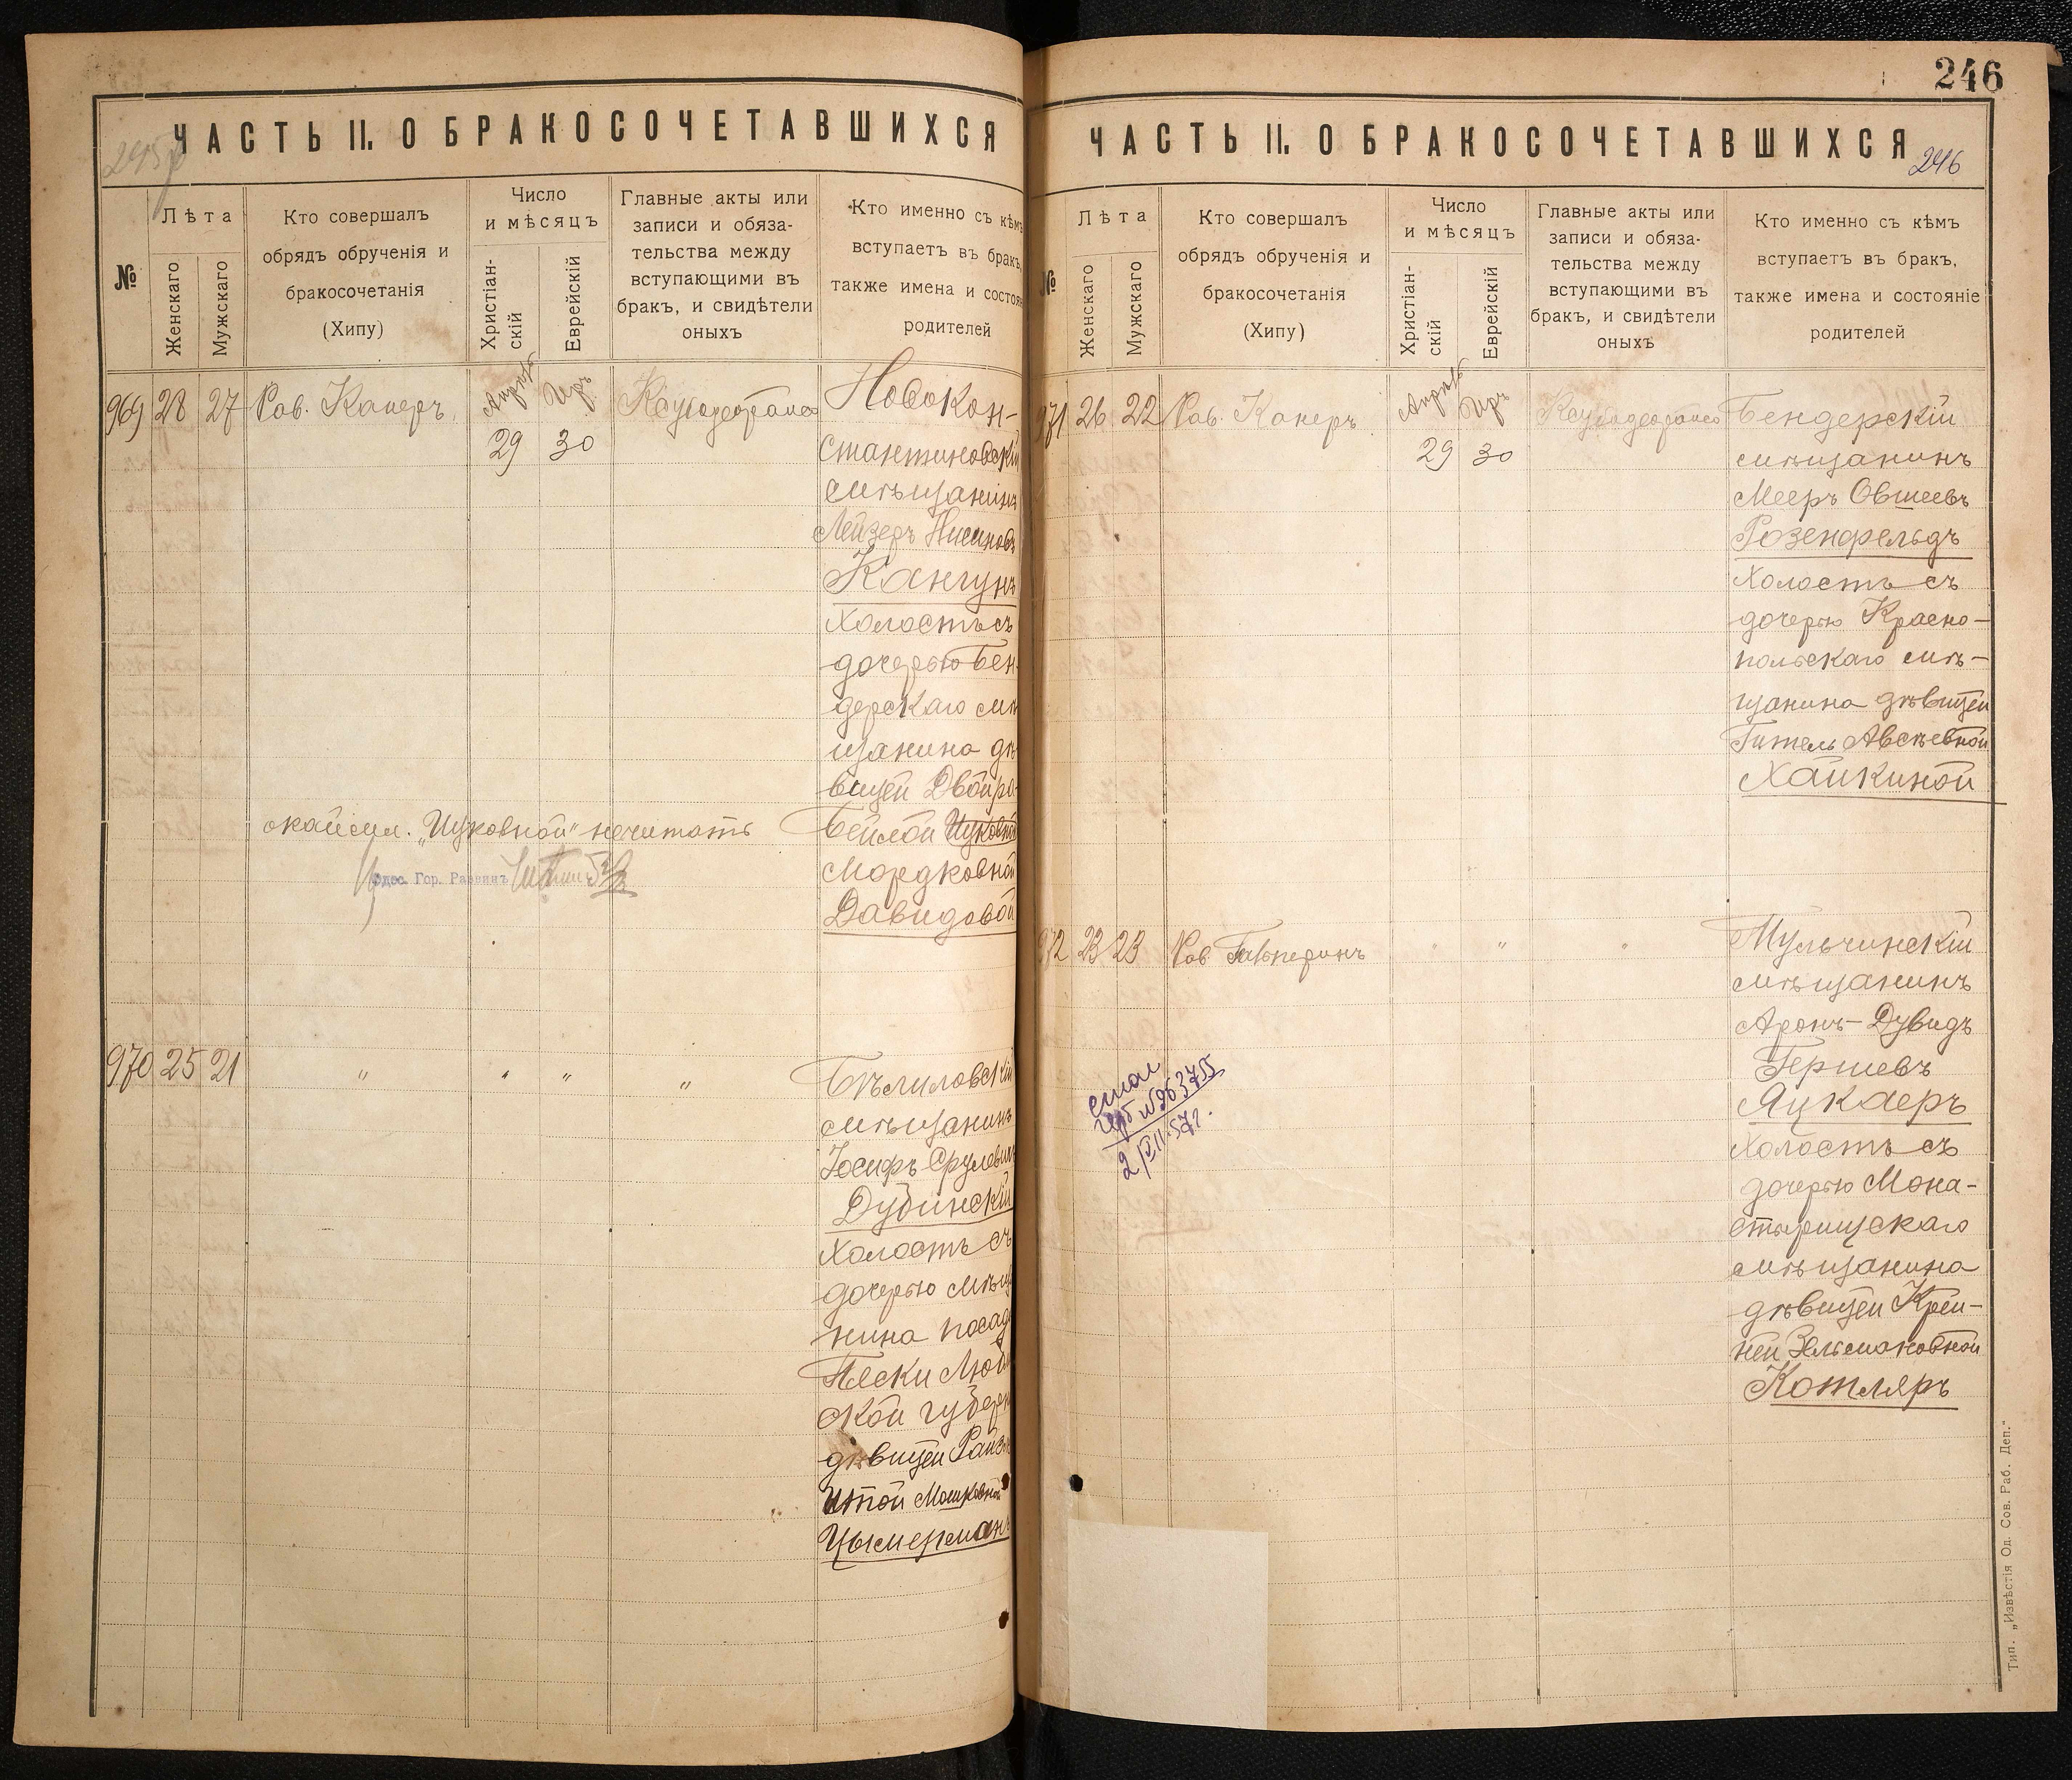 246
ЧАСТЬ II. О БРАКОСОЧЕТАВШИХСЯ
№
Лѣта
Женскаго
Мужскаго
Кто совершалъ
обрядъ обрученія и
бракосочетанія
(Хипу)
Число
и мѣсяцъ
Христіан-
скій
Еврейскій
Главные акты или
записи и обяза-
тельства между
вступающими въ
бракъ, и свидѣтели
оныхъ
Кто именно съ кѣмъ
вступаетъ въ бракъ,
также имена и состоя
родителей
969 28 27 Рав. Канеръ
29 30
Новокон-
стантиновскій
мѣщанинъ
Лейзеръ Нисиновъ
Кангунъ
холостъ съ
дочерью Бен-
дерскаго мѣ
щанина дѣ-
вицей Двойра-
Бейлой Ицковной
Мордковной
Давидовой
„Ицковной" нечитать
Одес. Гор. Раввинъ
970 25 21 " " " "
Бѣлиловскій
мѣщанинъ
Іосифъ Срулевичъ
Дубинскій
холостъ съ
дочерью мѣща
нина посада
Пяски Люб
ской губерн
дѣвицей Райзе
Итой Мошковной
Цымерманъ
ЧАСТЬ II. О БРАКОСОЧЕТАВШИХСЯ
246
№
Лѣта
Женскаго
Мужскаго
Кто совершалъ
обрядъ обрученія и
бракосочетанія
(Хипу)
Число
и мѣсяцъ
Христіан-
скій
Еврейскій
Главные акты или
записи и обяза-
тельства между
вступающими въ
бракъ, и свидѣтели
оныхъ
Кто именно съ кѣмъ
вступаетъ въ бракъ,
также имена и состояніе
родителей
971 26 22 Рав. Канеръ
29 30
Бендерскій
мѣщанинъ
Мееръ Овшеевъ
Розенфельдъ
холостъ съ
дочерью Красно-
польскаго мѣ-
щанина дѣвицей
Гитель Авсѣевной
Хайкиной
972 23 23 Рав. Гальперинъ " " "
Мульчинскій
мѣщанинъ
Аронъ-Дувидъ
Гершевъ
Яцкаеръ
холостъ съ
дочерью Мона-
стырищскаго
мѣщанина
дѣвицей Крей-
ней Зельмановной
Котляръ
Тип. „Извѣстія Од. Сов. Раб. Деп."